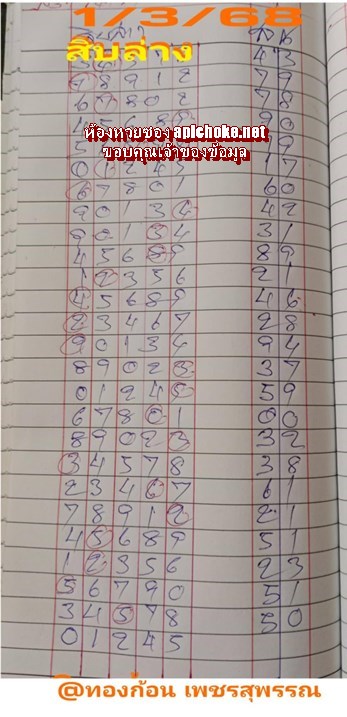 1/3/68
สิบล่าง
7 8 9 1 2 79
6 7 8 0 2 78
ห้องหวยซอง apichoke.net
ขอบคุณเจ้าของข้อมูล
0 1 2 4 5 17
6 7 8 0 1 60
9 0 1 3 4 42
9 0 1 3 4 31
4 5 6 8 9 89
1 2 3 5 6 21
4 5 6 8 9 46
2 3 4 6 7 28
9 0 1 3 4 94
8 9 0 2 3 37
0 1 2 4 5 59
6 7 8 0 1 00
8 9 0 2 3 32
3 4 5 7 8 38
2 3 4 6 7 61
7 8 9 1 2 21
4 5 6 8 9 51
1 2 3 5 6 23
5 6 7 9 0 51
3 4 5 7 8 50
0 1 2 4 5
@ทองก้อน เพชรสุพรรณ